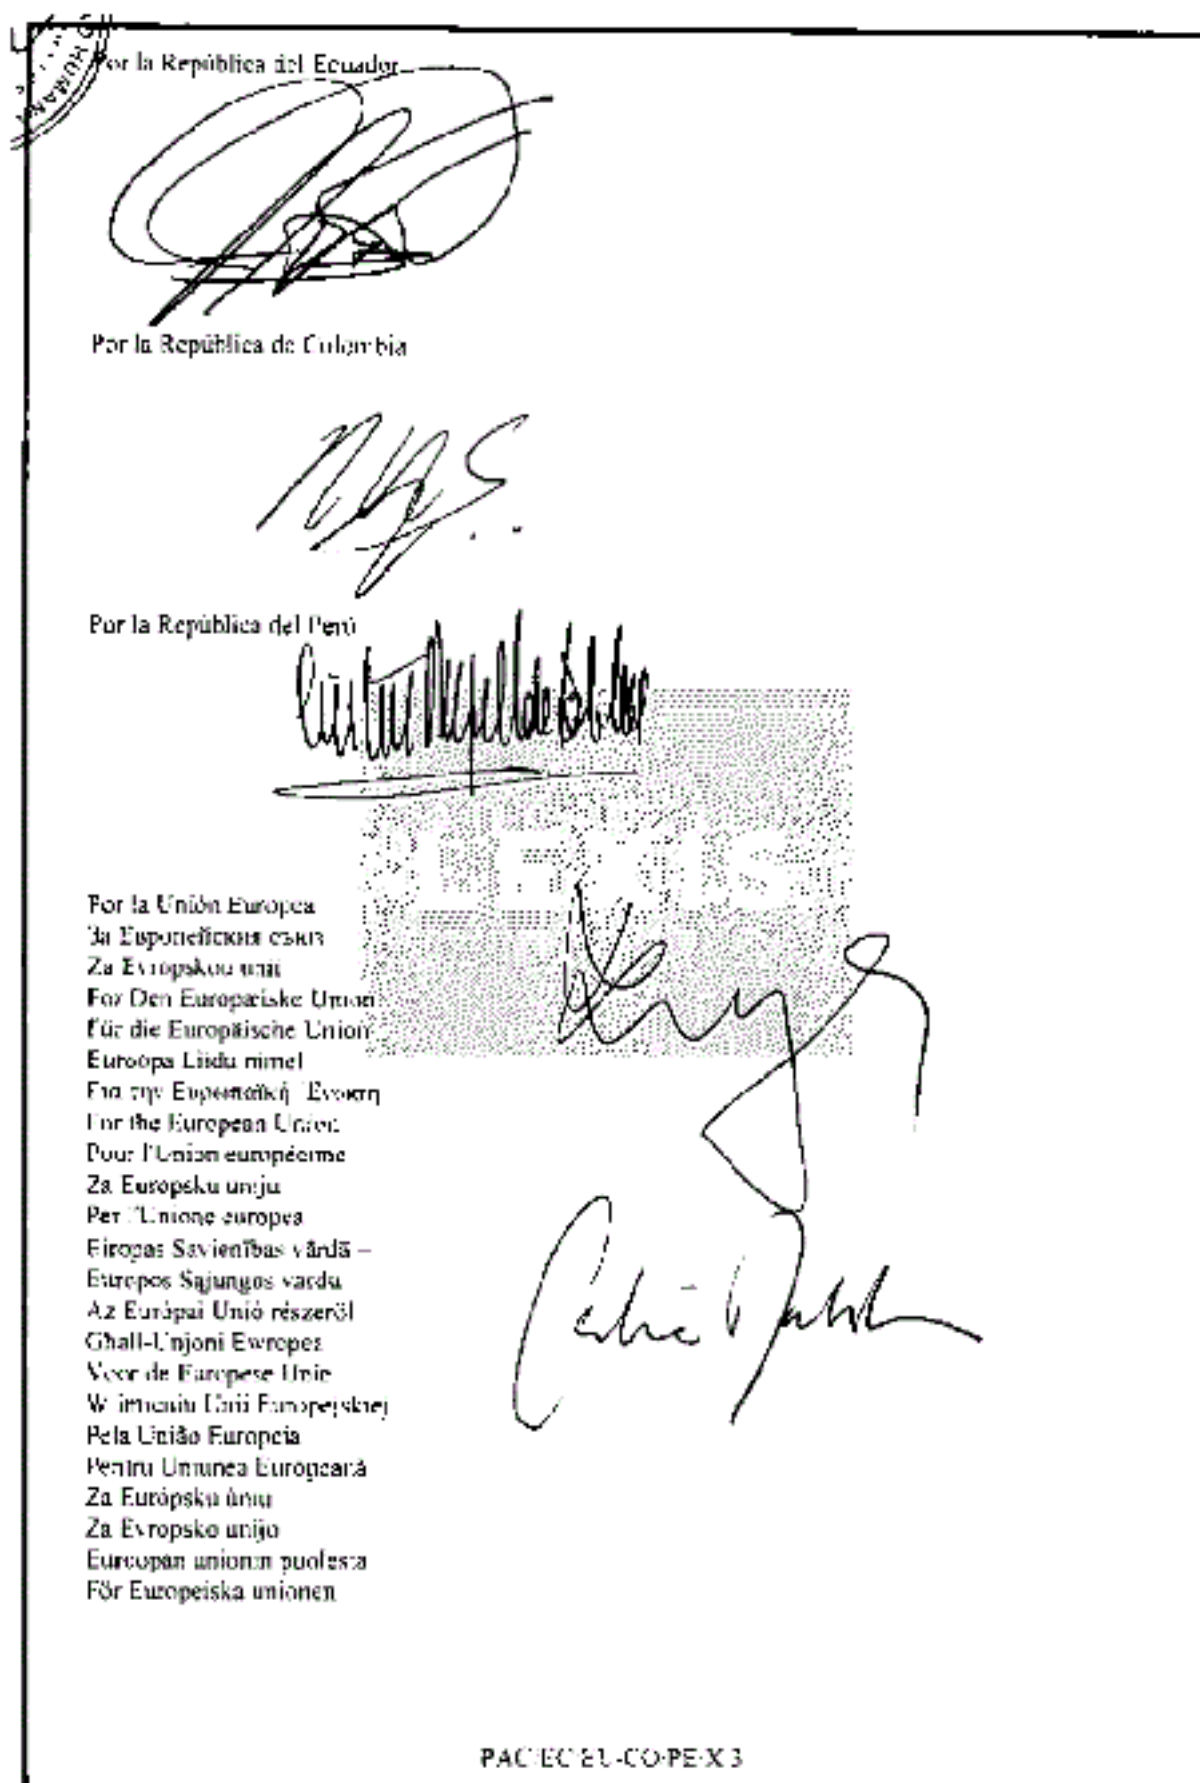 Por la República del Ecuador
Por la República de Colombia
Por la República del Perú
LEXIS
Por la Unión Europea
За Европейския съюз
Za Evropskou unii
For Den Europæiske Union
Für die Europäische Union
Euroopa Liidu nimel
Για την Ευρωπαϊκή Ένωση
For the European Union
Pour l'Union européenne
Za Europsku uniju
Per l'Unione europea
Eiropas Savienības vārdā –
Europos Sąjungos vardu
Az Európai Unió részéről
Għall-Unjoni Ewropea
Voor de Europese Unie
W imieniu Unii Europejskiej
Pela União Europeia
Pentru Uniunea Europeană
Za Európsku úniu
Za Evropsko unijo
Euroopan unionin puolesta
För Europeiska unionen
PAC/EC/EU-CO-PE/X 3